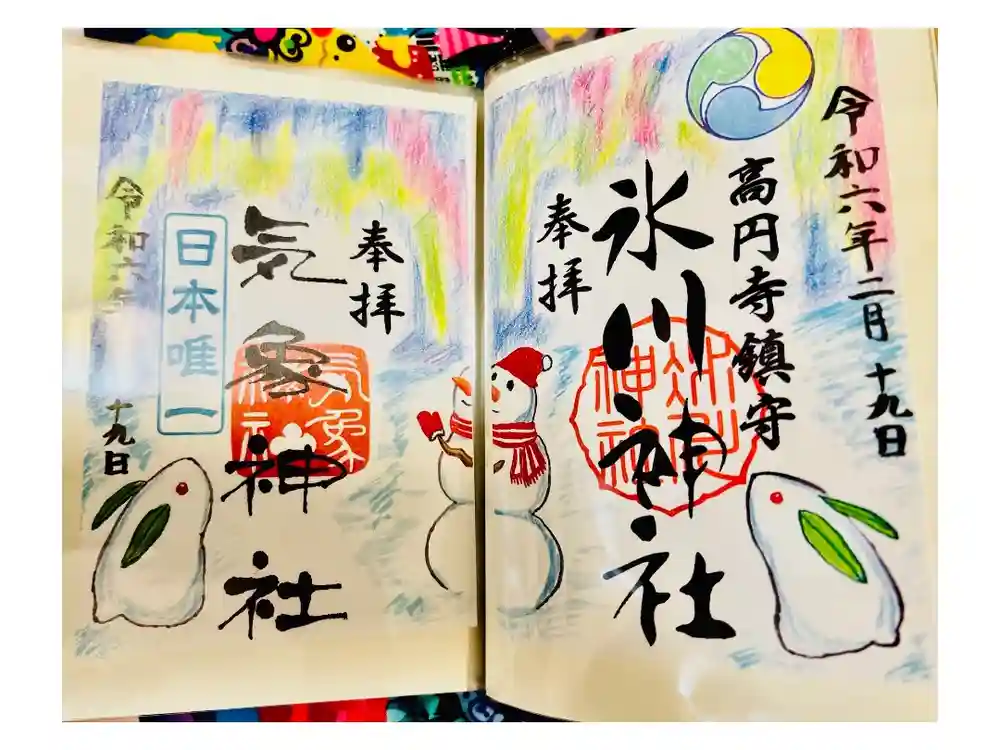 令和六年二月十九日
高円寺鎮守
氷川神社
奉拝
奉拝
気象神社
日本唯一
令和六年
十九日